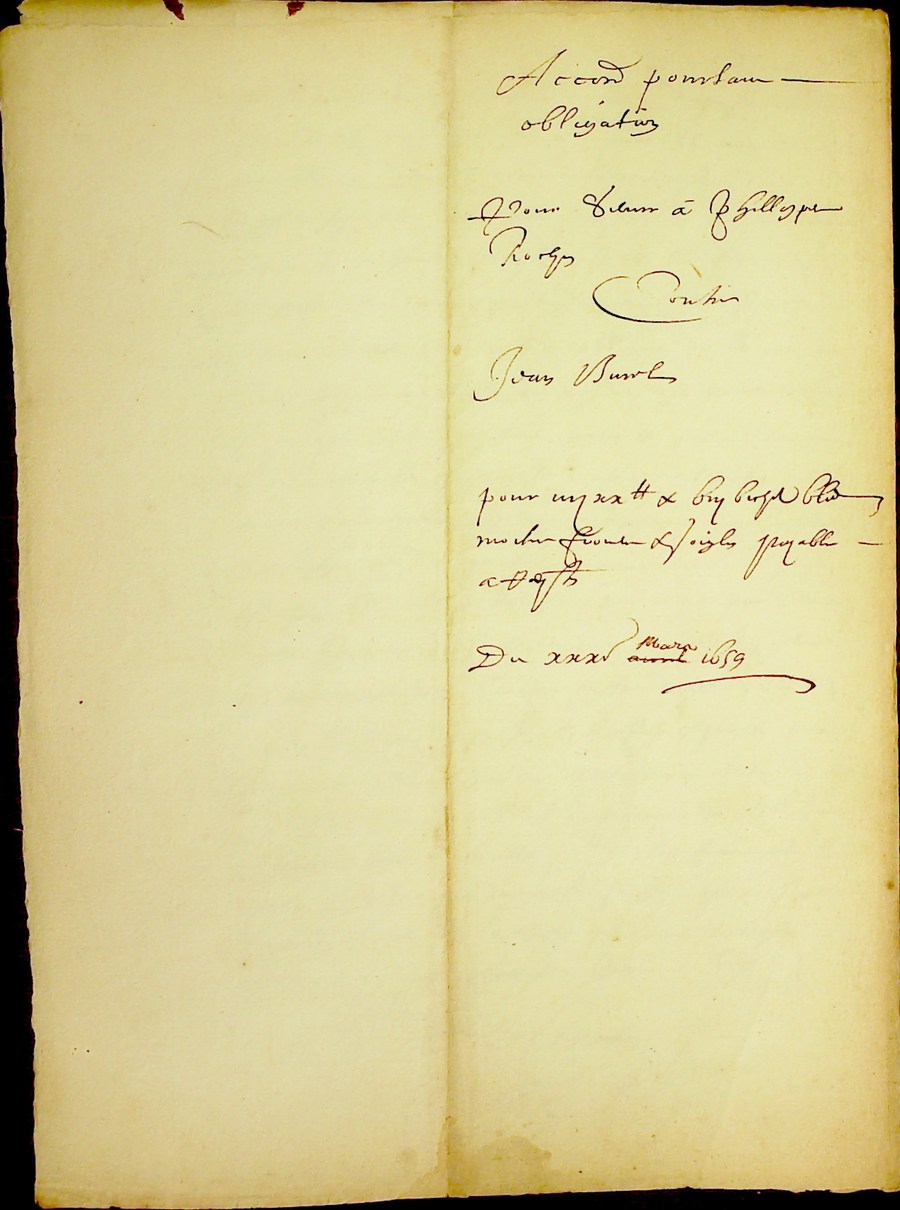 Accord portant
obligation
Pour Sieur a Phillippe
Roche
Contre
Jean Burel
pour iiijxx tt & bled
moitie froment & soigle payable
a
Du xxxe avril Mars 1659